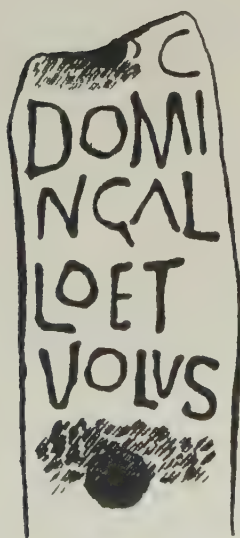 C
DOMI
NÇAL
LOET
VOLVS